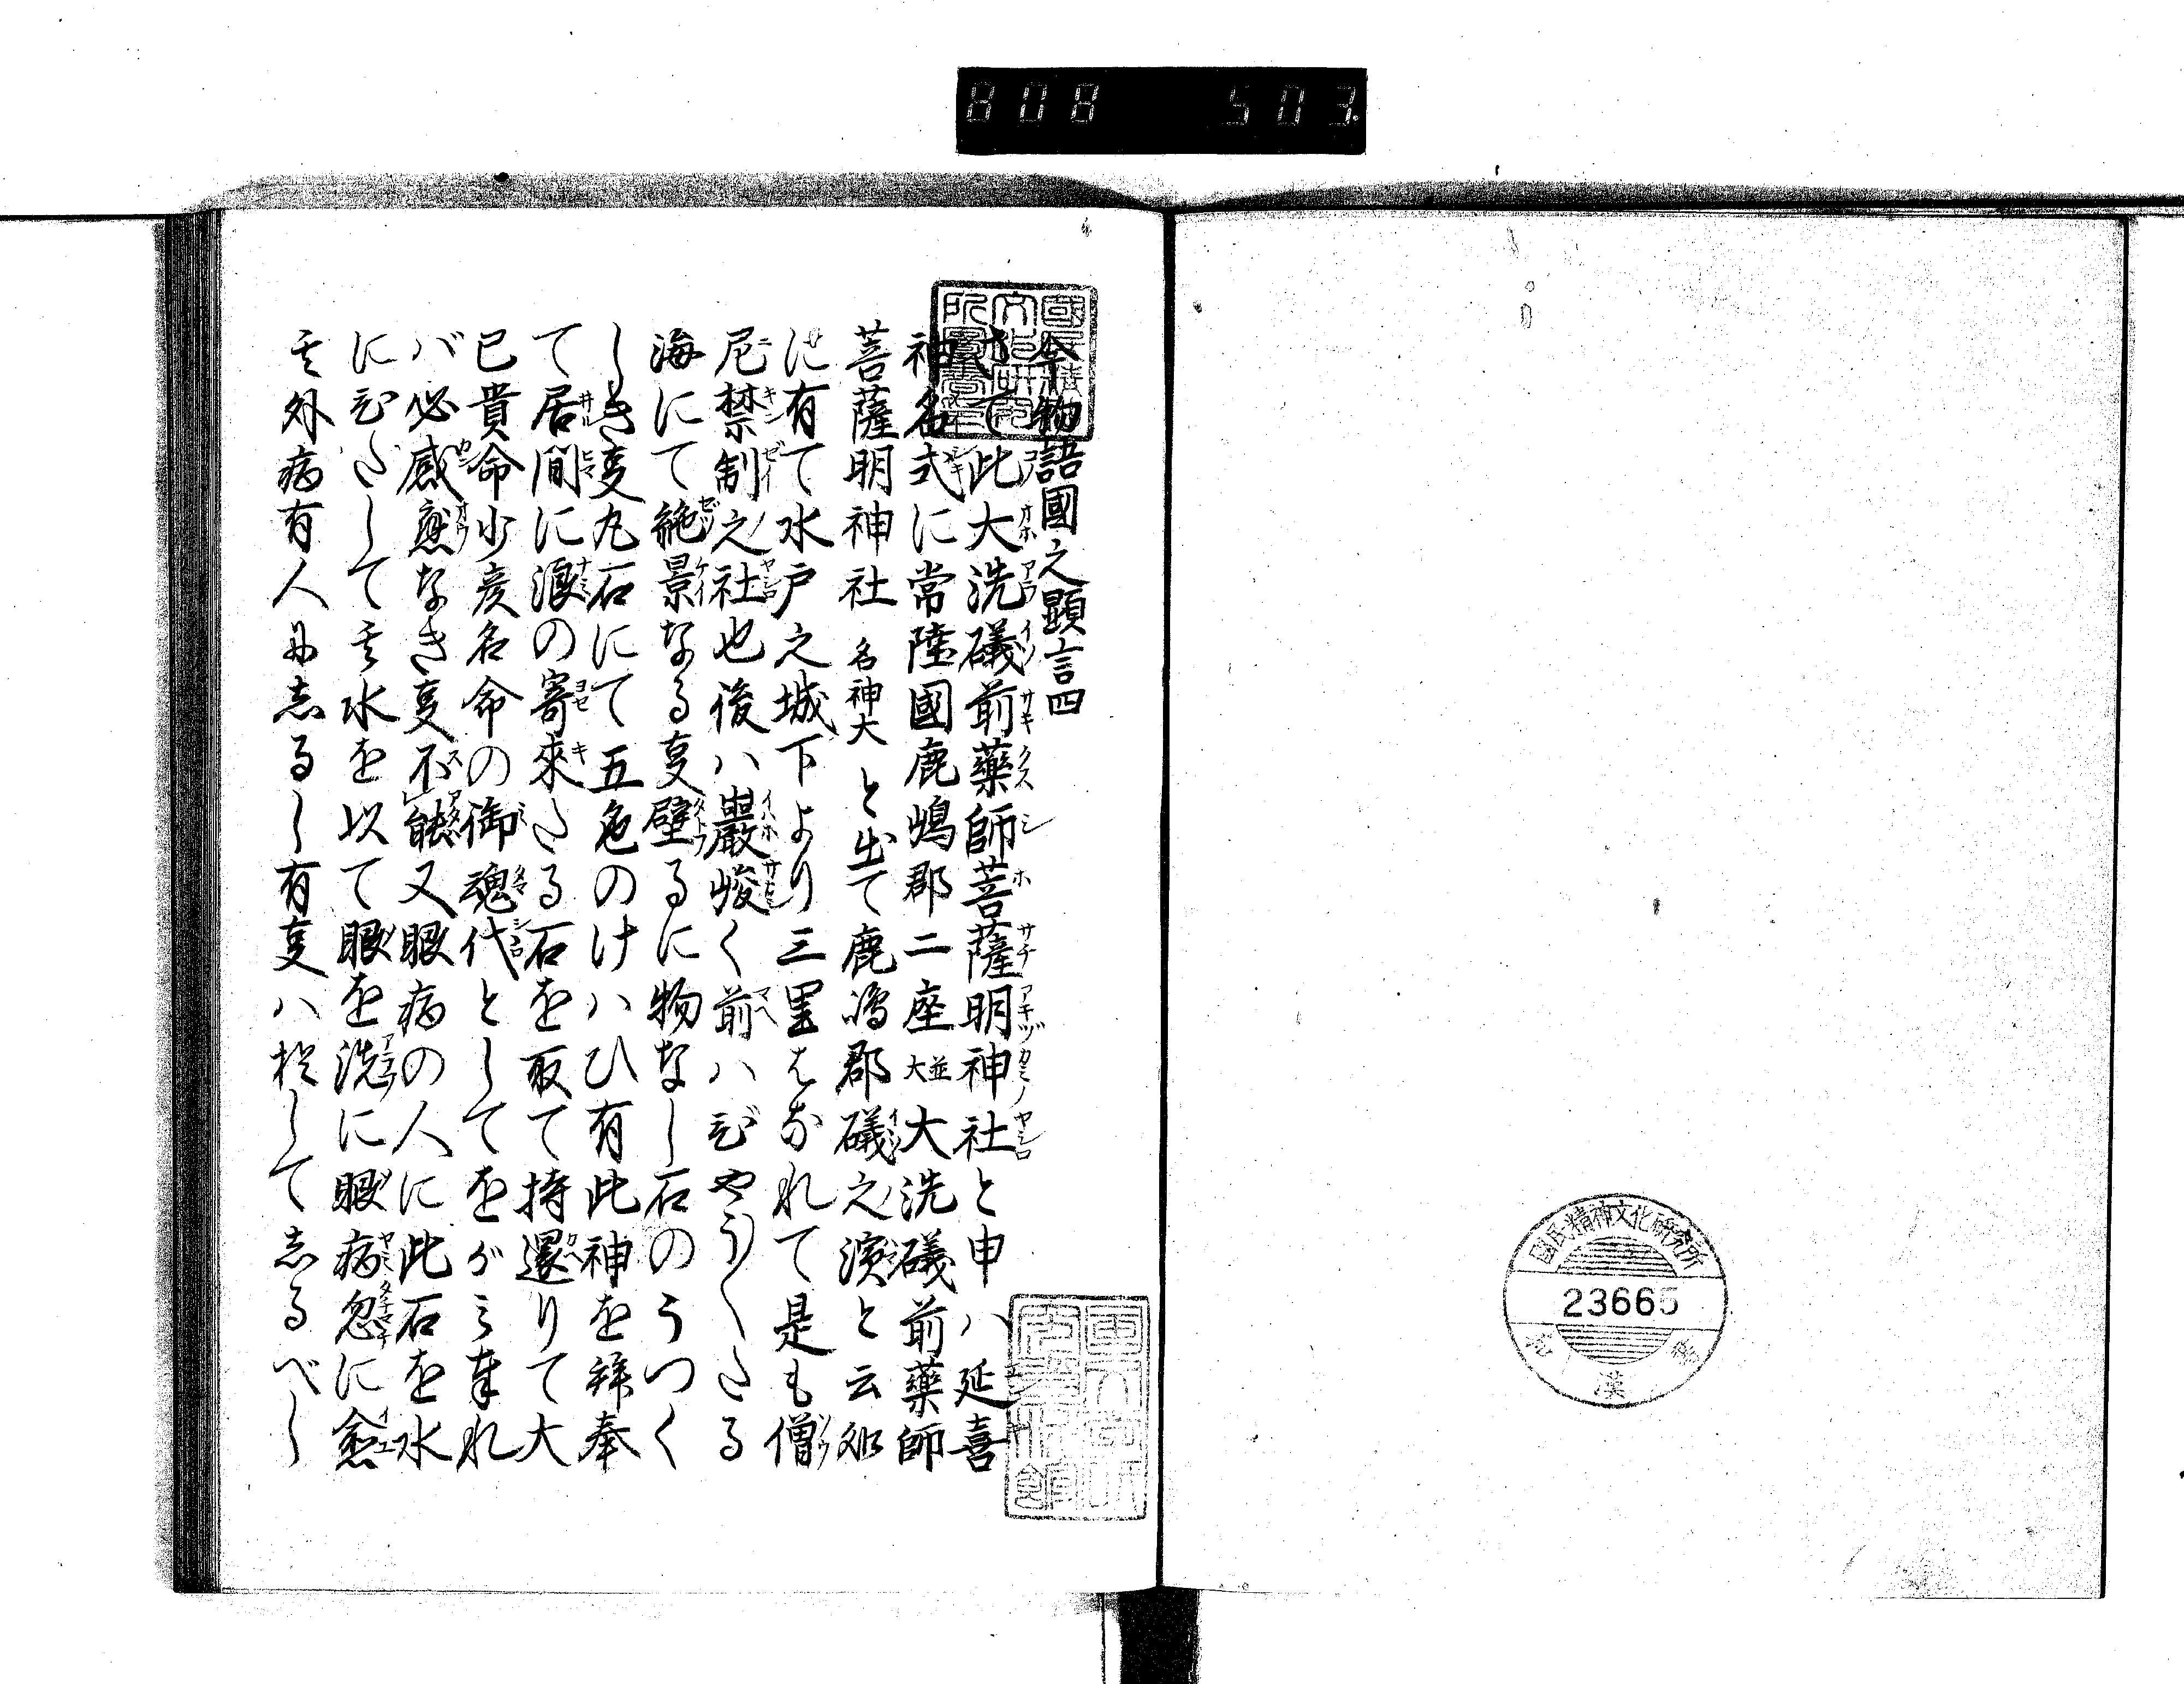 808 503
今物語國之顕言四
さて此大洗礒前藥師菩薩明神社と申ハ延喜
神名式に常陸國鹿嶋郡二座並大大洗礒前藥師
菩薩明神社名神大と出て鹿嶋郡礒之濱と云処
に有て水戸之城下より三里はなれて是も僧
尼禁制之社也後ハ巖峻く前ハびやうくたる
海にて絶景なる事壁るに物なし石のうつく
しき事丸石にて五色のけハひ有此神を拜奉
て居間に浪の寄來たる石を取て持還りて大
已貴命少彦名命の御魂代としてをがミ奉れ
バ必感應なき事不能又眼病の人に此石を水
にひたして其水を以て眼を洗に眼病忽に愈
其外病有人にしるし有事ハ推してしるべし
國民精神文化研究所
23665